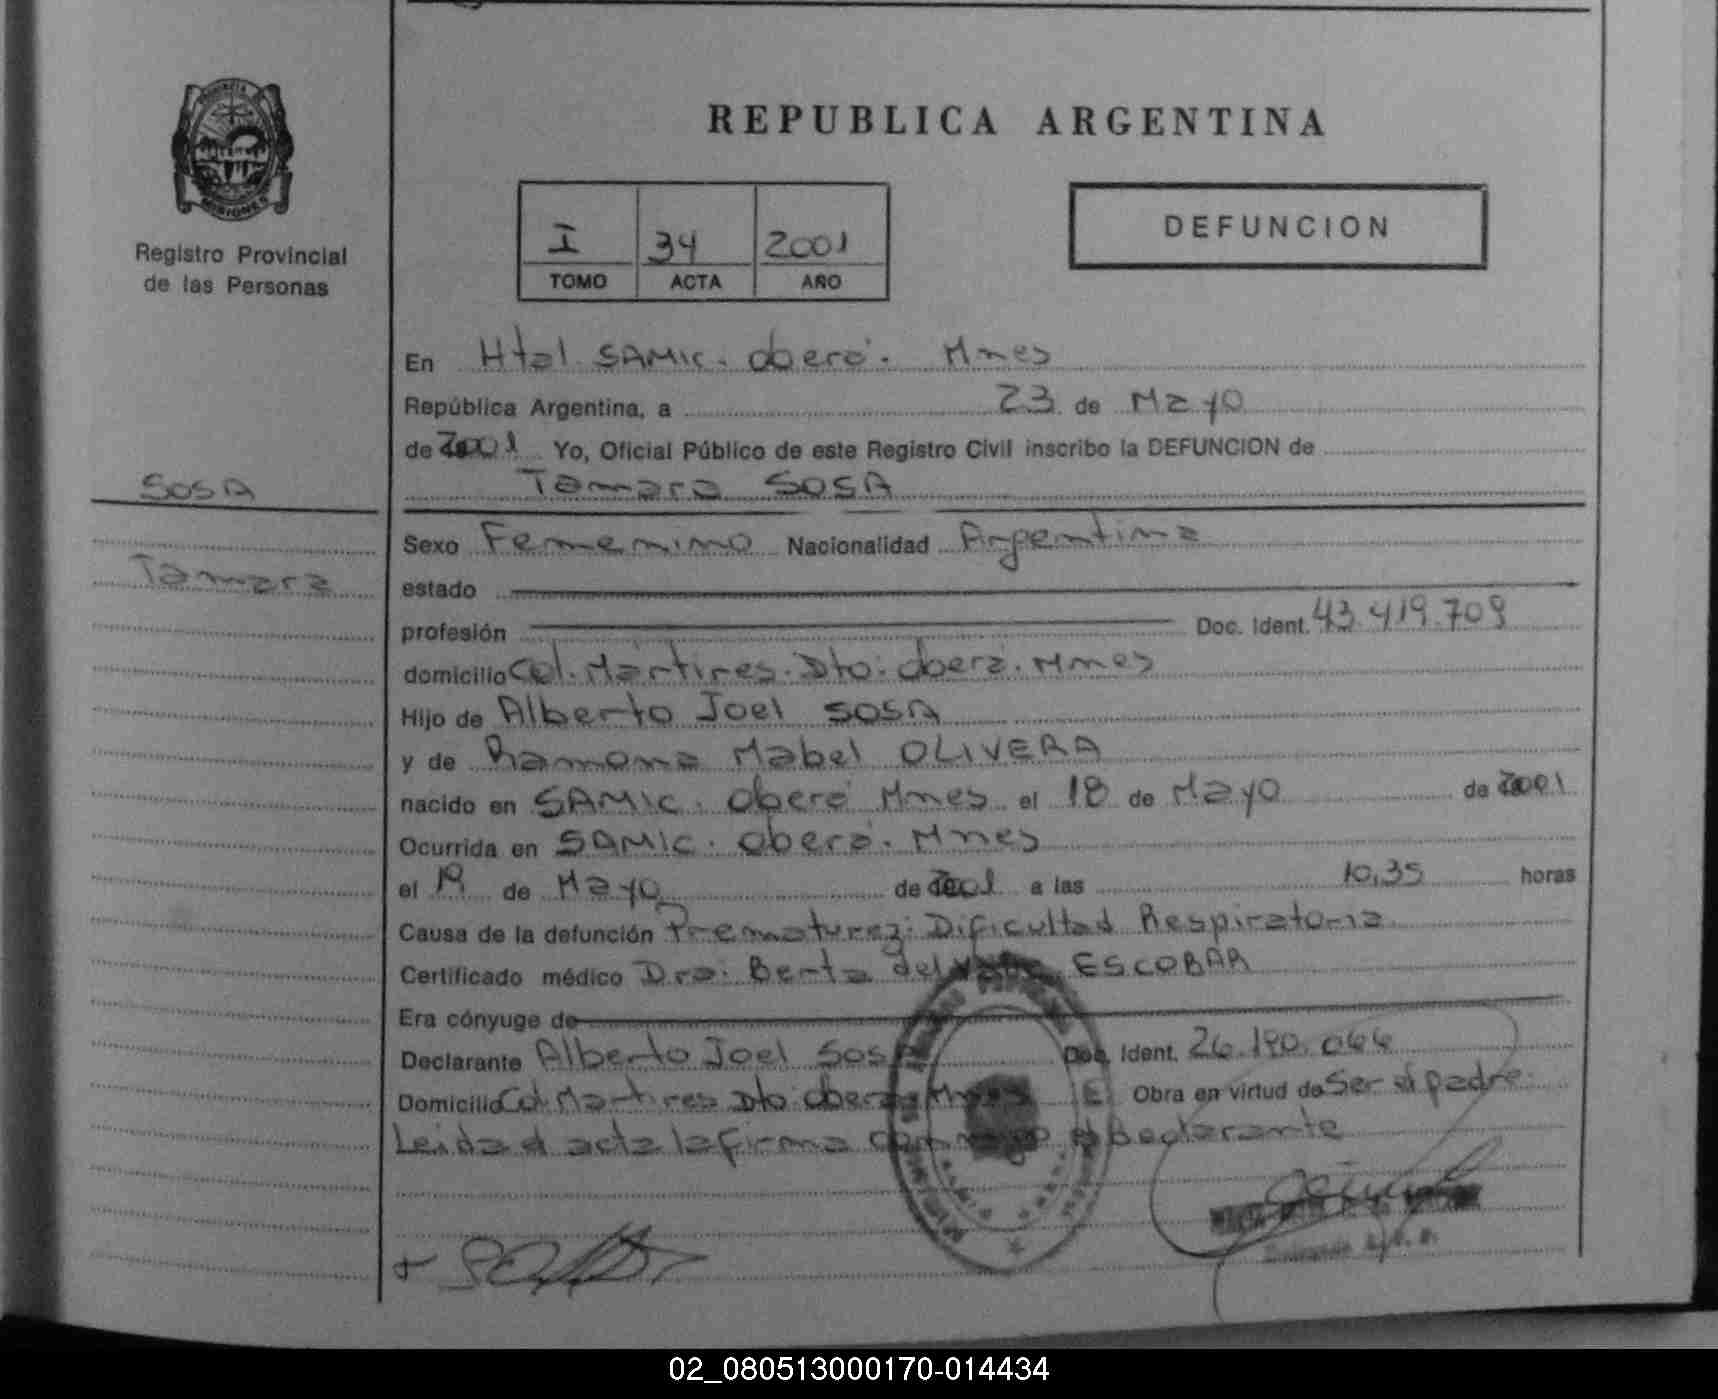 PROVINCIA DE
MISIONES
Registro Provincial
de las Personas
REPUBLICA ARGENTINA
I 34 2001
TOMO ACTA AÑO
DEFUNCION
En Htal. SAMIC. oberá. Mnes
República Argentina, a 23 de Mayo
de 2001 Yo, Oficial Público de este Registro Civil inscribo la DEFUNCION de
Tamara SOSA
SOSA
Tamara
Sexo Femenino Nacionalidad Argentina
estado
profesión Doc. Ident. 43.419.709
domicilio Col. Mártires. Dto: oberá. Mnes
Hijo de Alberto Joel SOSA
y de Ramona Mabel OLIVERA
nacido en SAMIC. Oberá Mnes el 18 de Mayo de 2001
Ocurrida en SAMIC. oberá. Mnes
el 19 de Mayo de 2001 a las 10,35 horas
Causa de la defunción Prematurez; Dificultad Respiratoria
Certificado médico Dra: Berta del Valle ESCOBAR
Era cónyuge de
Declarante Alberto Joel Sosa Doc. Ident. 26.190.066
Domicilio Col Martires Dto: oberá Mnes Obra en virtud de Ser el padre.
Leida el acta la firma conmigo el Declarante
02_080513000170-014434